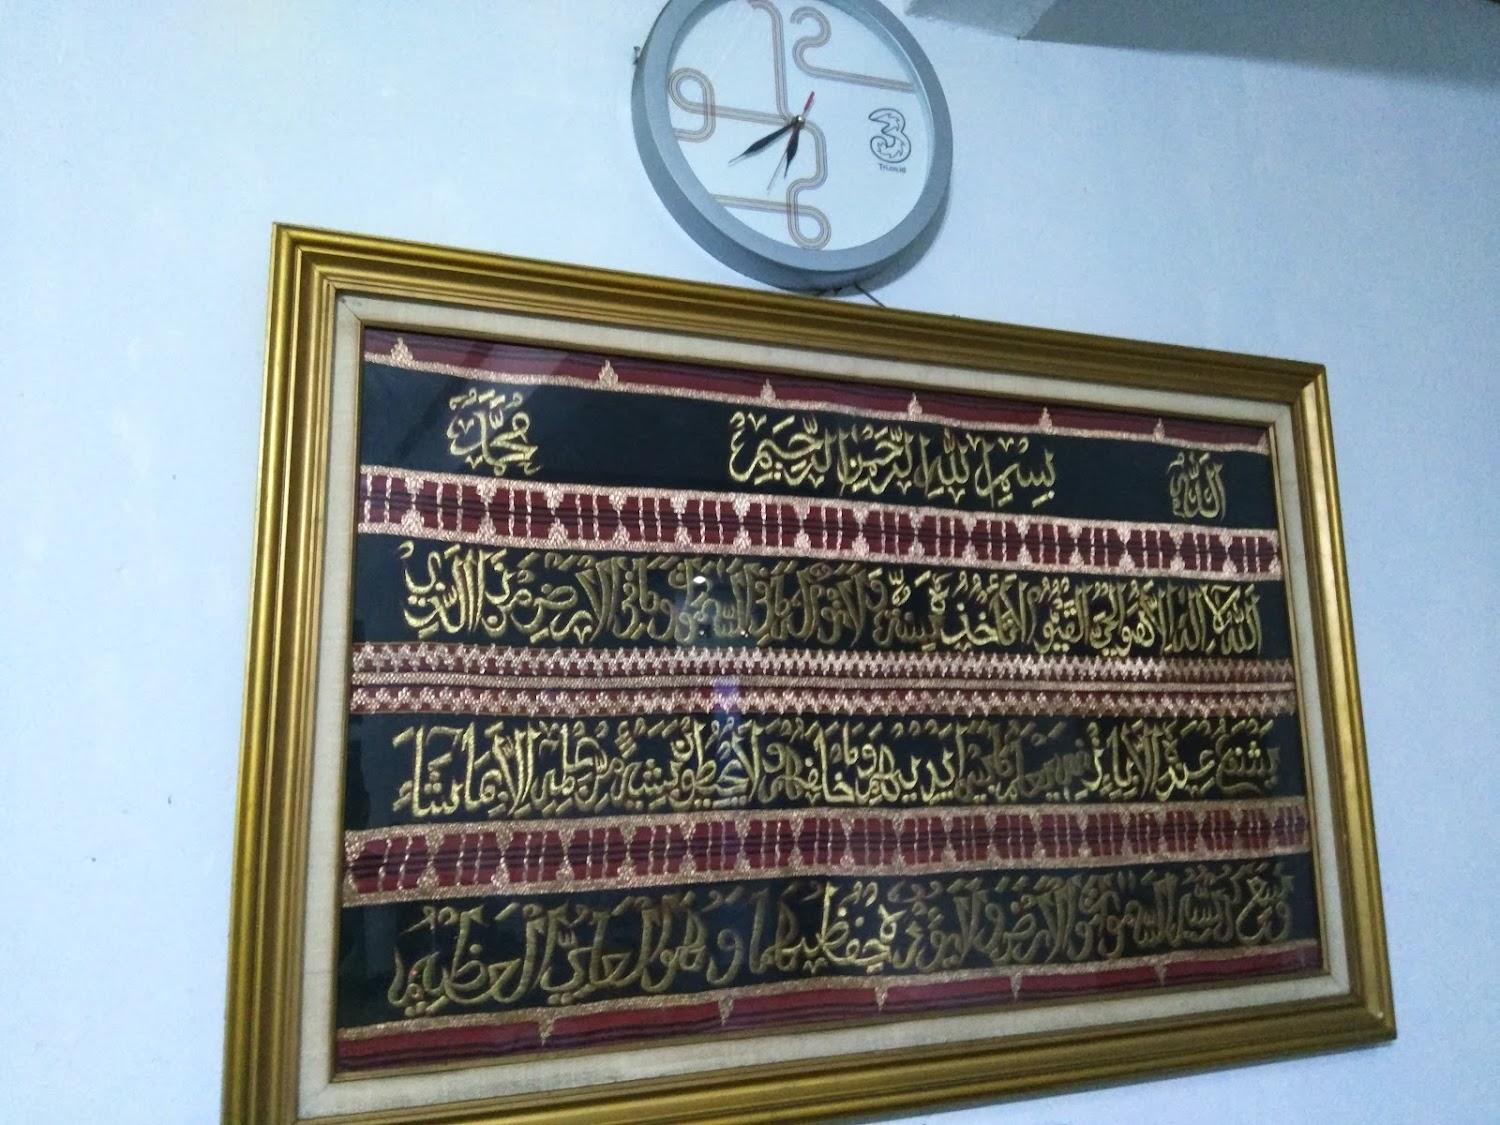 3
Tri.co.id
الله بِسْمِ اللهِ الرَّحْمٰنِ الرَّحِيْمِ مُحَمَّد
اَللهُ لَا اِلٰهَ اِلَّا هُوَ الْحَيُّ الْقَيُّوْمُ لَا تَأْخُذُهٗ سِنَةٌ وَّلَا نَوْمٌ لَهٗ مَا فِى السَّمٰوٰتِ وَمَا فِى الْاَرْضِ مَنْ ذَا الَّذِيْ
يَشْفَعُ عِنْدَهٗ اِلَّا بِاِذْنِهٖ يَعْلَمُ مَا بَيْنَ اَيْدِيْهِمْ وَمَا خَلْفَهُمْ وَلَا يُحِيْطُوْنَ بِشَيْءٍ مِّنْ عِلْمِهٖ اِلَّا بِمَا شَاءَ
وَسِعَ كُرْسِيُّهُ السَّمٰوٰتِ وَالْاَرْضَ وَلَا يَؤُدُهٗ حِفْظُهُمَا وَهُوَ الْعَلِيُّ الْعَظِيْمُ